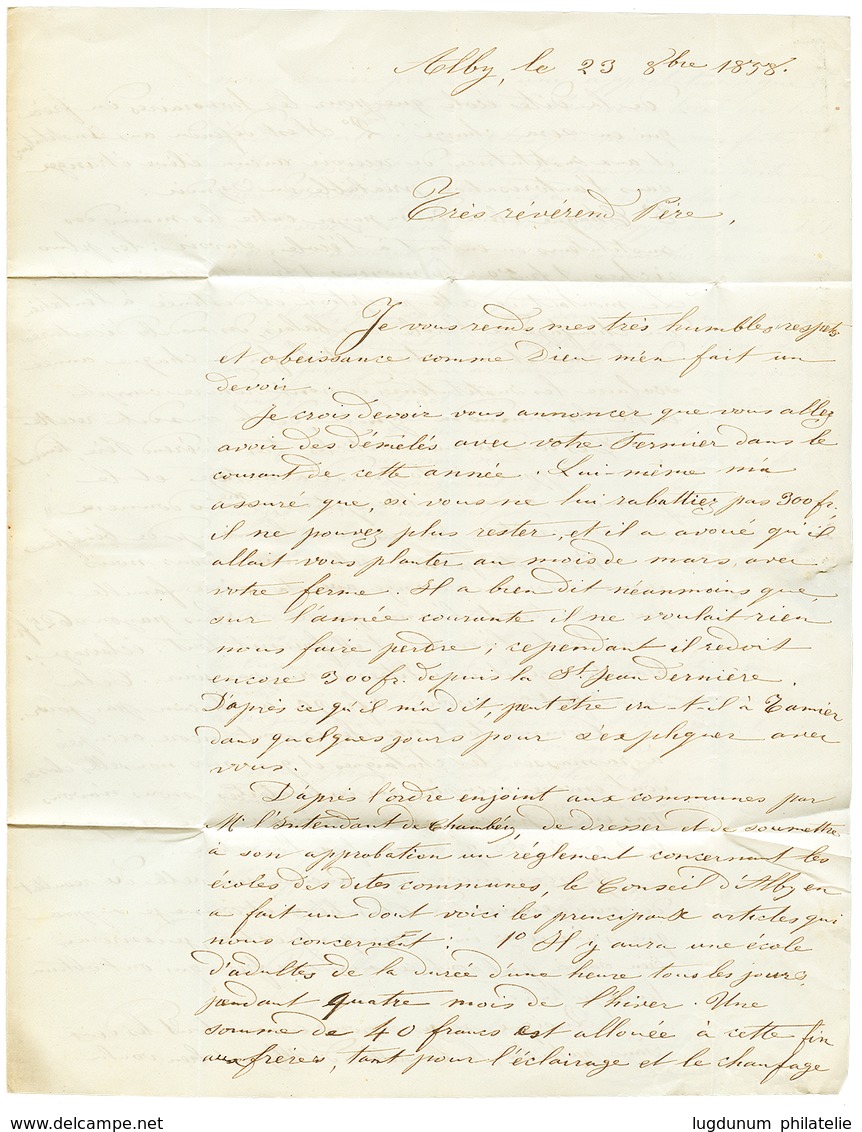 Alby, le 23 8bre 1858.
Très révérend Père,
Je vous rends mes très humbles respets
et obeissance comme Dieu m'en fait un
devoir.
Je crois devoir vous annoncer que vous allez
avoir des démêlés avec votre Fermier dans le
courant de cette année. Lui-même m'a
assuré que, si vous ne lui rabattiez pas 300 fr.,
il ne pouvez plus rester, et il a avoué qu'il
allait vous planter au mois de mars, avec
votre ferme. Il a bien dit néanmoins que,
sur l'année courante il ne voulait rien
nous faire perdre; cependant il redoit
encore 300 fr. depuis la St. Jean dernière.
D'après ce qu'il m'a dit, peut être va-t-il à Tamier
dans quelques jours pour s'expliquer avec
vous.
D'après l'ordre enjoint aux communes par
Mr l'Intendant de Chambéry, de dresser et de soumettre
à son approbation un réglement concernant les
écoles des dites communes, le Conseil d'Alby en
a fait un dont voici les principaux articles qui
nous concernent: 1o Il y aura une école
d'adultes de la durée d'une heure tous les jours,
pendant quatre mois de l'hiver. Une
somme de 40 francs est allouée à cette fin
aux frères, tant pour l'éclairage et le chaufage
lugdunum philatelie